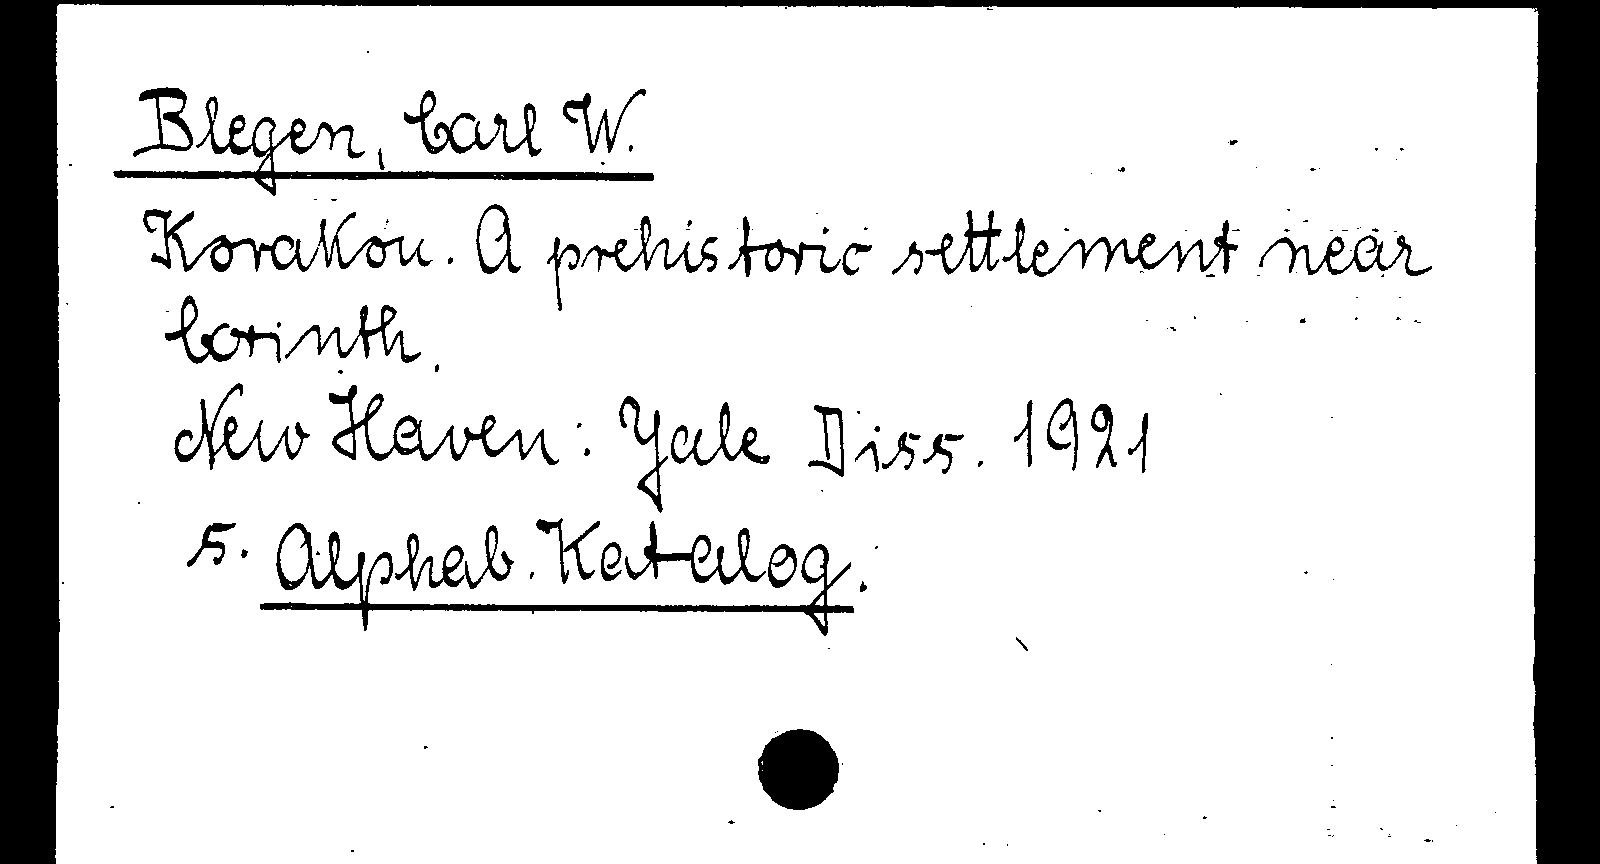 Blegen, Carl W.
Korakou. A prehistoric settlement near
Corinth.
New Haven: Yale Diss. 1921
s. Alphab. Katalog.